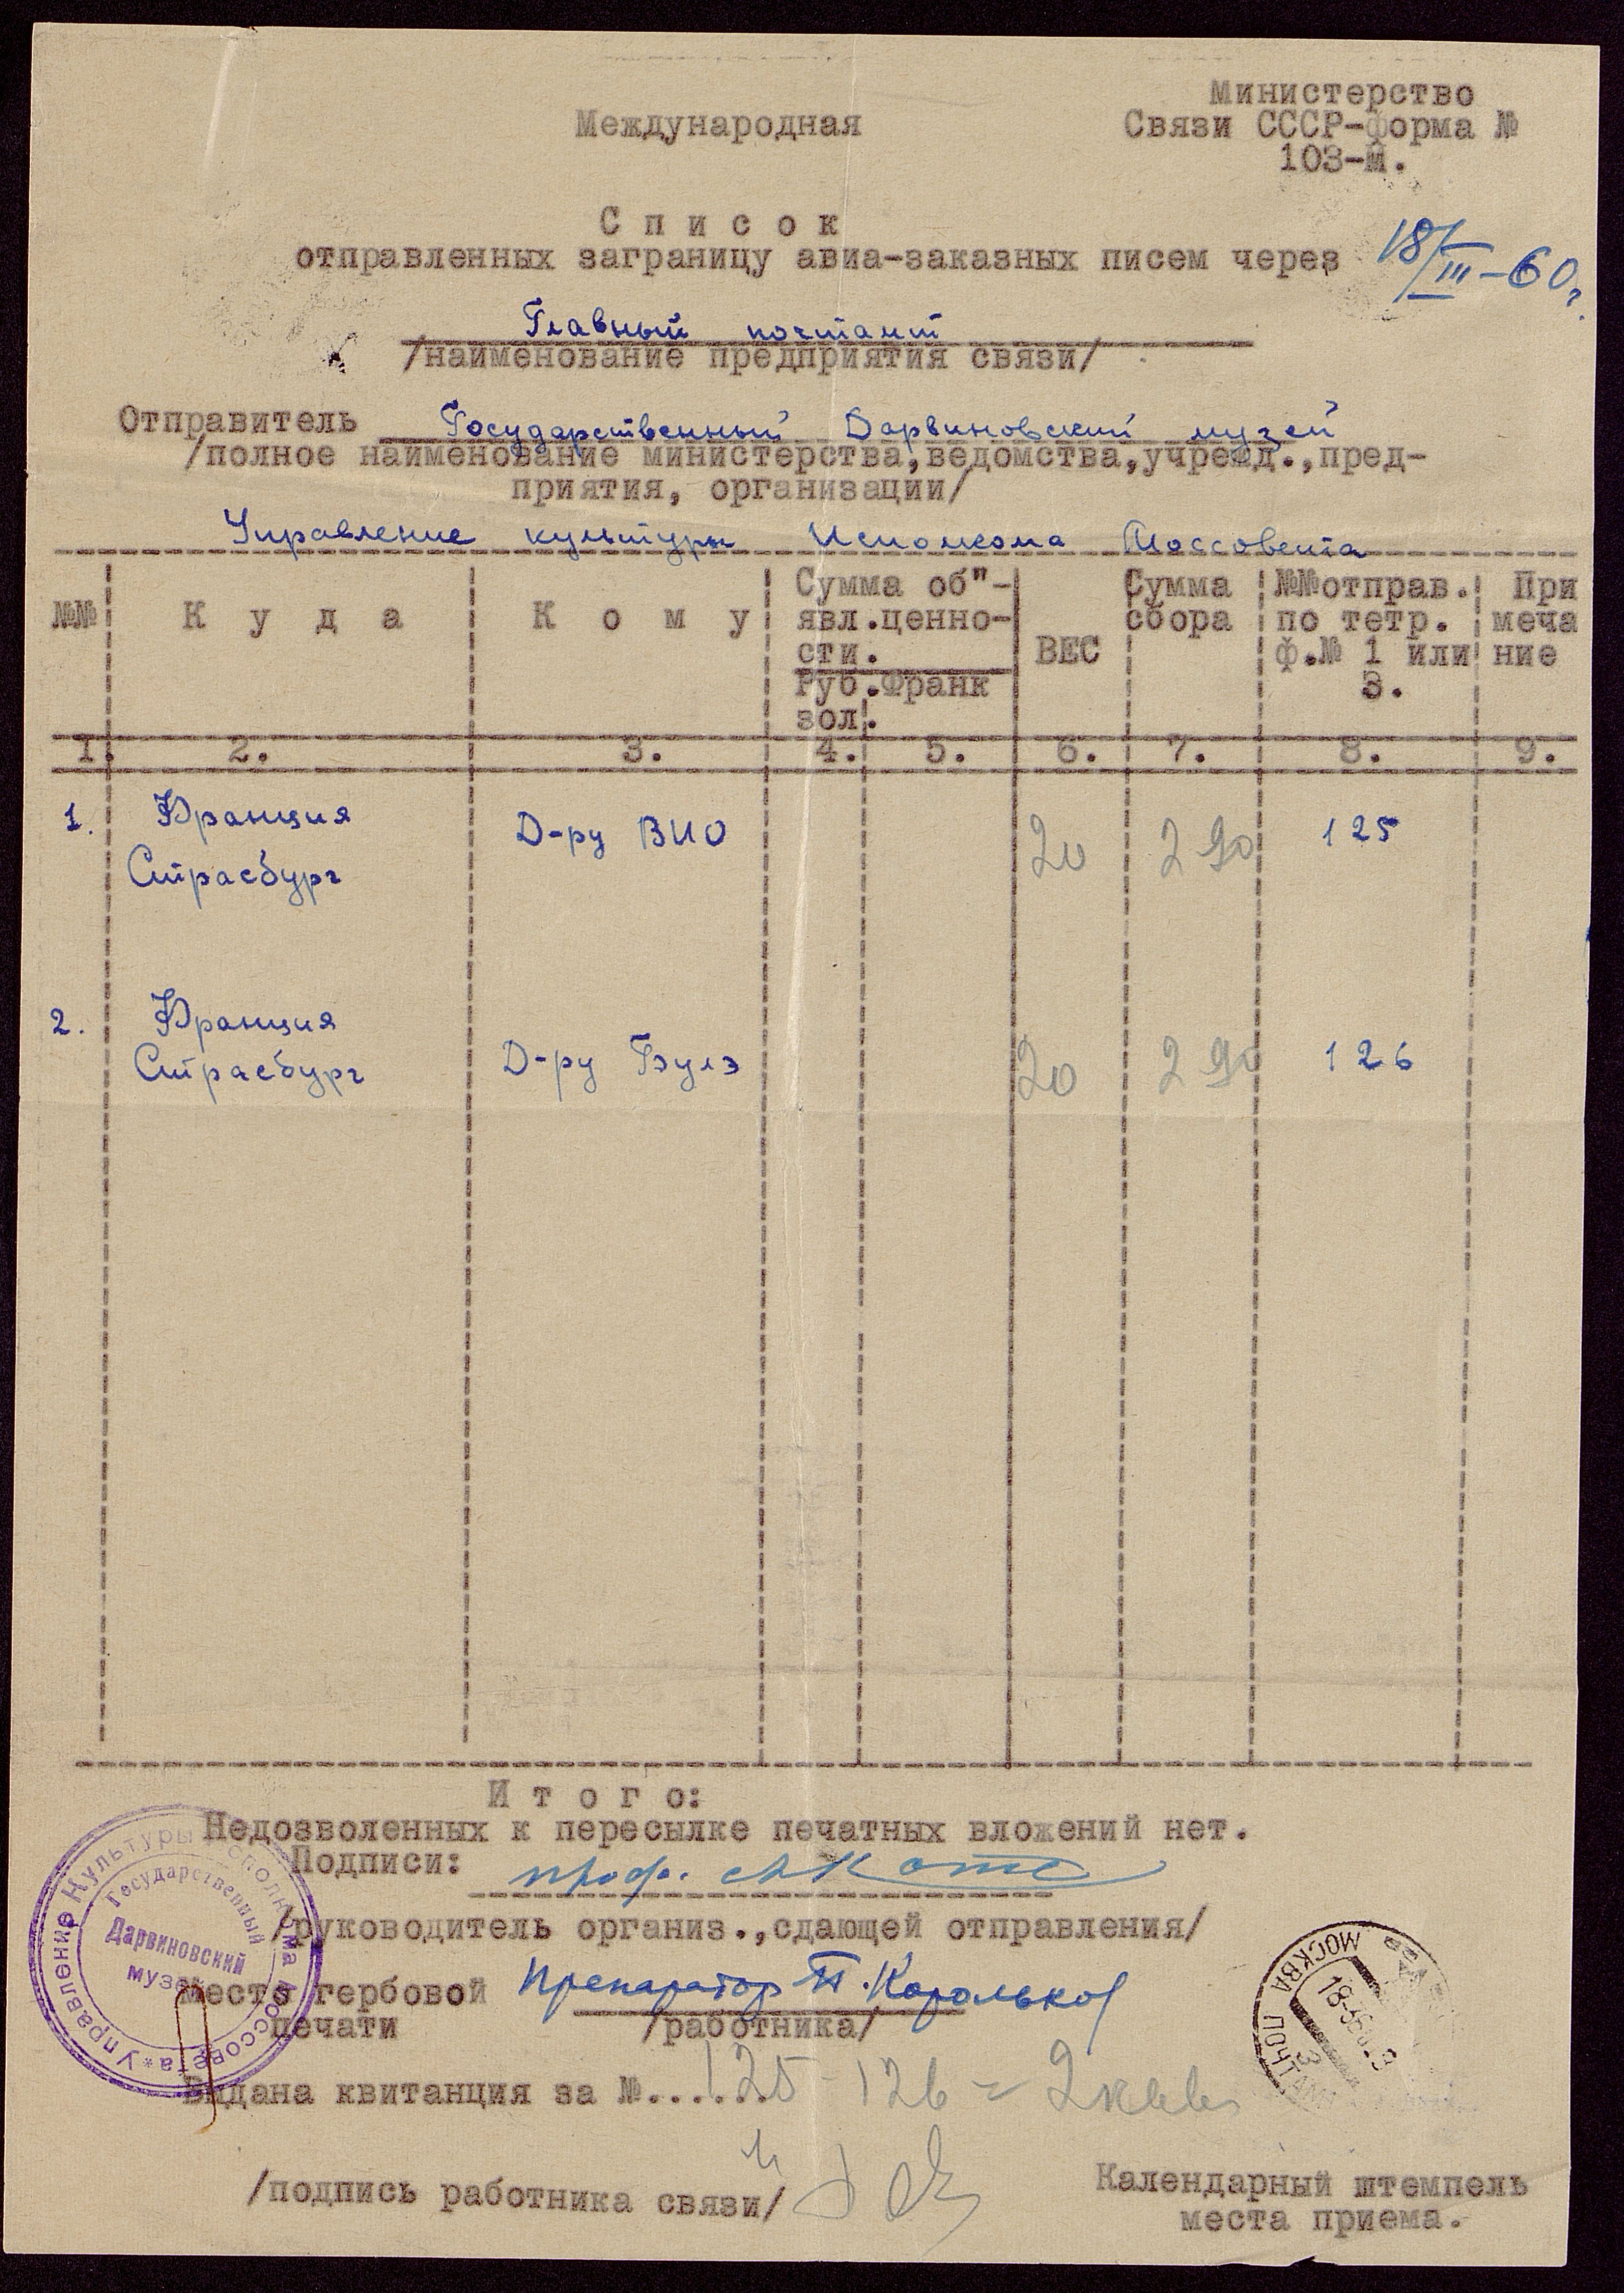 Министерство
Международная
Связи СССР-форма №
103-М.
Список
отправленных заграницу авиа-заказных писем через
18/III-60г.
Главный почтамт
/наименование предприятия связи/
Отправитель Государственный Дарвиновский музей
/полное наименование министерства,ведомства,учрежд.,пред-
приятия, организации/
Управление культуры Исполкома Моссовета
№№ Куда Кому Сумма об"- явл.ценно- сти. Руб.Франк зол. ВЕС Сумма сбора №№отправ. по тетр. ф.№ 1 или 3. При меча ние
1. 2. 3. 4. 5. 6. 7. 8. 9.
1. Франция Д-ру ВИО 20 2 90 125
Страсбург
2. Франция
Страсбург Д-ру Буле 20 2 90 126
Итого:
Недозволенных к пересылке печатных вложений нет.
Подписи: проф. Котс
/руководитель организ.,сдающей отправления/
Место гербовой Препаратор П. Корольков
печати /работника/
Выдана квитанция за №...... 125-126 = 2
/подпись работника связи/
Календарный штемпель
места приема.
Управление Культуры Исполкома Моссовета
Государственный
Дарвиновский
музей
МОСКВА ПОЧТАМТ